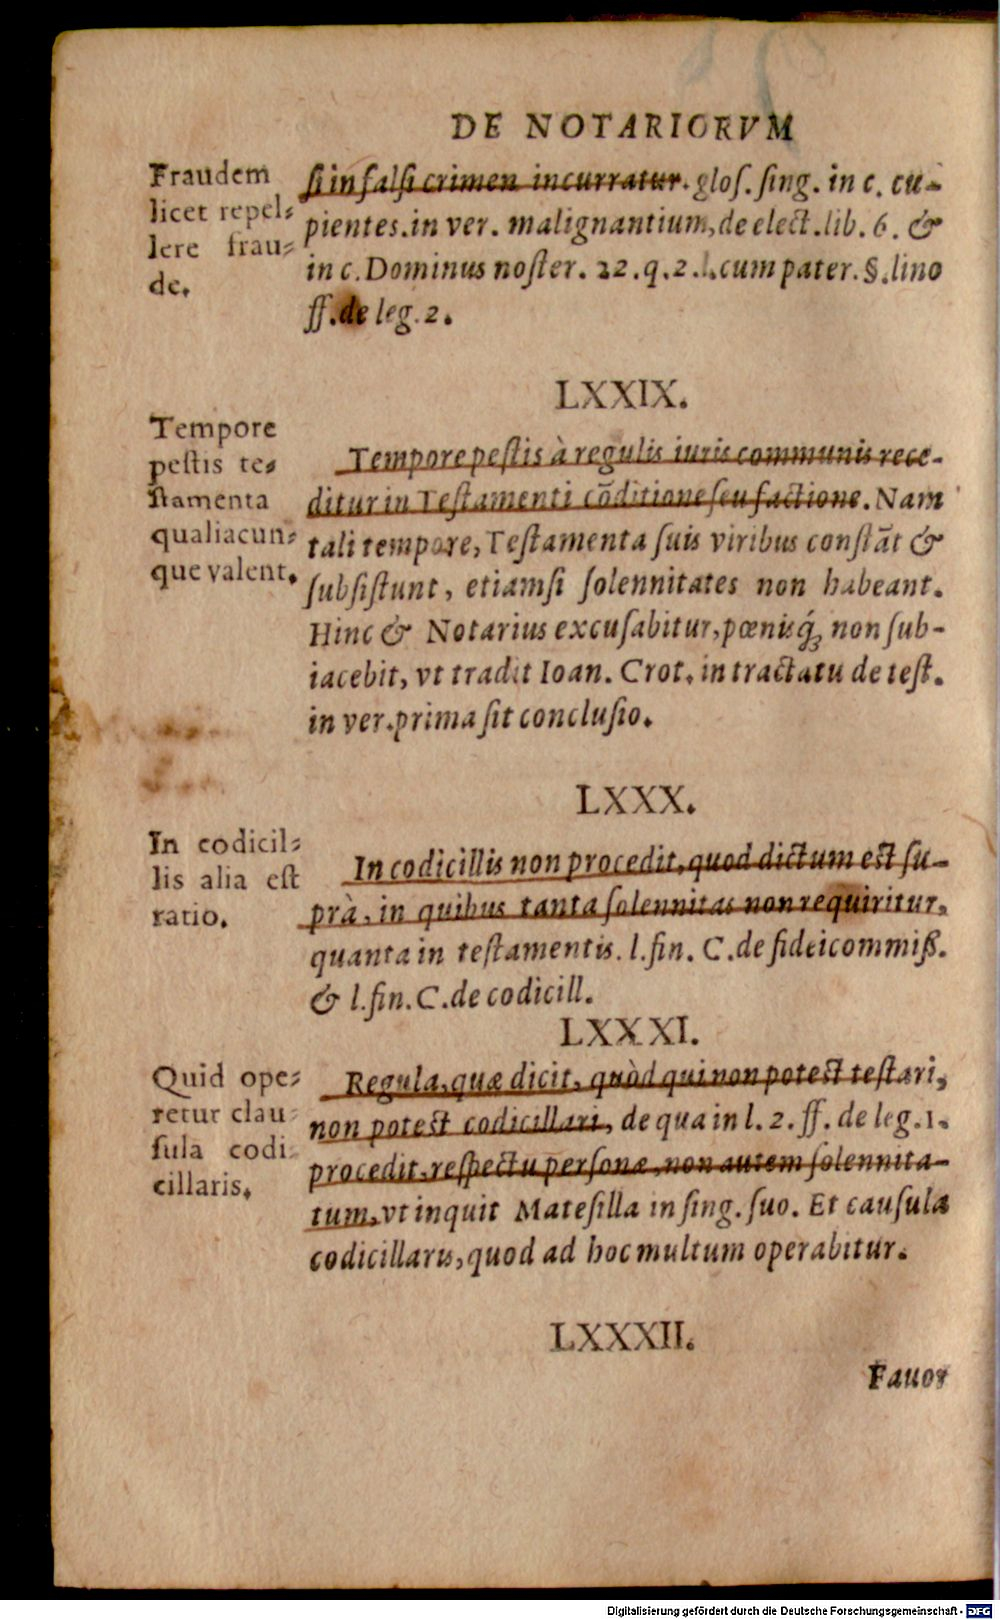 DE NOTARIORVM
Fraudem
licet repel-
lere frau-
de.
si in falsi crimen incurratur. glos. sing. in c. cu-
pientes. in ver. malignantium, de elect. lib. 6. &
in c. Dominus noster. 22. q. 2. l. cum pater. §. lino
ff. de leg. 2.
LXXIX.
Tempore
pestis te-
stamenta
qualiacun-
que valent.
Tempore pestis à regulis iuris communis rece-
ditur in Testamenti cōditione seu factione. Nam
tali tempore, Testamenta suis viribus constāt &
subsistunt, etiamsi solennitates non habeant.
Hinc & Notarius excusabitur, pœnisq́; non sub-
iacebit, vt tradit Ioan. Crot. in tractatu de test.
in ver. prima sit conclusio.
LXXX.
In codicil-
lis alia est
ratio.
In codicillis non procedit, quod dictum est su-
prà, in quibus tanta solennitas non requiritur,
quanta in testamentis. l. fin. C. de fideicommiß.
& l. fin. C. de codicill.
LXXXI.
Quid ope-
retur clau-
sula codi-
cillaris.
Regula, quæ dicit, quòd qui non potest testari,
non potest codicillari, de qua in l. 2. ff. de leg. 1.
procedit, respectu personæ, non autem solennita-
tum, vt inquit Matesilla in sing. suo. Et causula
codicillaris, quod ad hoc multum operabitur.
LXXXII.
Fauor
Digitalisierung gefördert durch die Deutsche Forschungsgemeinschaft - DFG